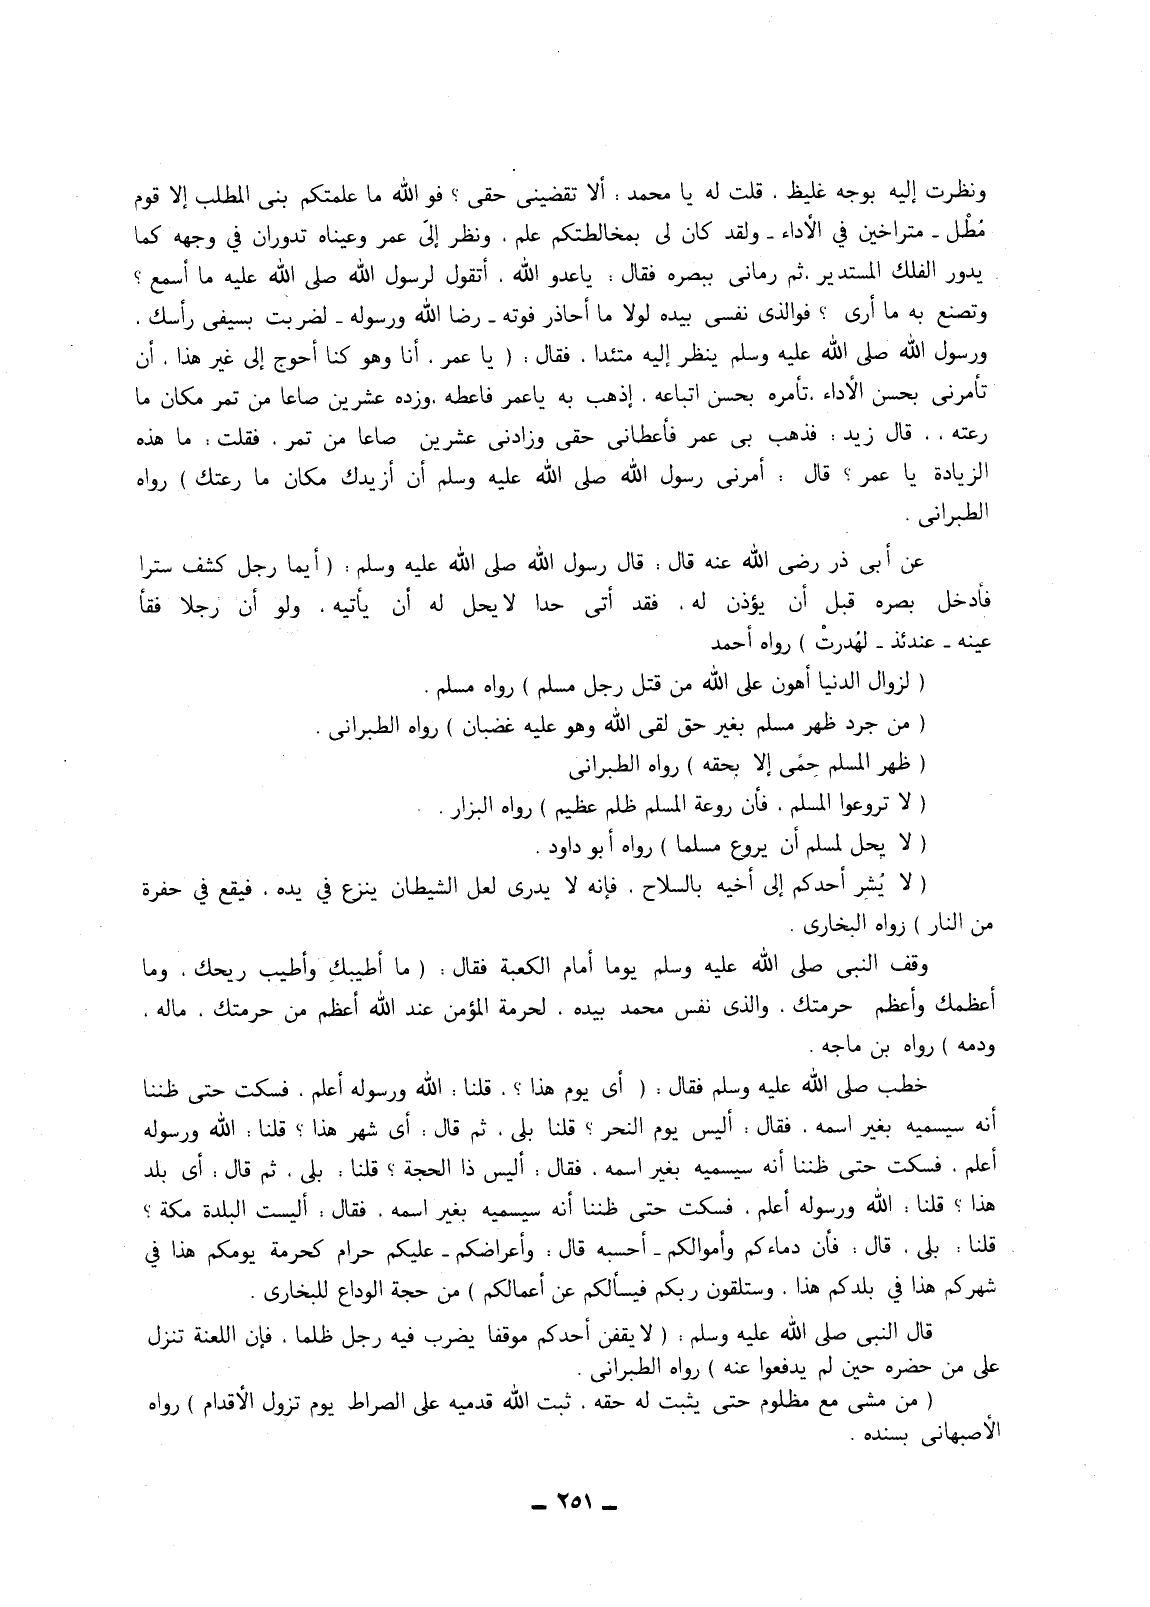 ونظرت إليه بوجه غليظ ، قلت له يا محمد : ألا تقضينى حقى ؟ فو الله ما علمتكم بنى المطلب إلا قوم
مُطْل ـ متراخين في الأداء ـ ولقد كان لى بمخالطتكم علم ، ونظر إلىَّ عمر وعيناه تدوران في وجهه كما
يدور الفلك المستدير ،ثم رمانى ببصره فقال : ياعدو الله ، أتقول لرسول الله صلى الله عليه ما أسمع ؟
وتصنع به ما أرى ؟ فوالذى نفسى بيده لولا ما أحاذر فوته ـ رضا الله ورسوله ـ لضربت بسيفى رأسك ،
ورسول الله صلى الله عليه وسلم ينظر إليه متئدا ، فقال : ( يا عمر ، أنا وهو كنا أحوج إلى غير هذا ، أن
تأمرنى بحسن الأداء ،تأمره بحسن اتباعه ، إذهب به ياعمر فاعطه ،وزده عشرين صاعا من تمر مكان ما
رعته ، ، قال زيد : فذهب بى عمر فأعطانى حقى وزادنى عشرين صاعا من تمر ، فقلت : ما هذه
الزيادة يا عمر ؟ قال : أمرنى رسول الله صلى الله عليه وسلم أن أزيدك مكان ما رعتك ) رواه
الطبرانى .
عن أبى ذر رضى الله عنه قال : قال رسول الله صلى الله عليه وسلم : ( أيما رجل كشف سترا
فأدخل بصره قبل أن يؤذن له ، فقد أتى حدا لايحل له أن يأتيه ، ولو أن رجلا فقأ
عينه ـ عندئذ ـ لهُدرتْ ) رواه أحمد
( لزوال الدنيا أهون على الله من قتل رجل مسلم ) رواه مسلم .
( من جرد ظهر مسلم بغير حق لقى الله وهو عليه غضبان ) رواه الطبرانى .
( ظهر المسلم حِمًى إلا بحقه ) رواه الطبرانى
( لا تروعوا المسلم ، فأن روعة المسلم ظلم عظيم ) رواه البزار .
( لا يحل لمسلم أن يروع مسلما ) رواه أبو داود .
( لا يُشِر أحدكم إلى أخيه بالسلاح ، فإنه لا يدرى لعل الشيطان ينزع في يده ، فيقع في حفرة
من النار ) رواه البخارى .
وقف النبى صلى الله عليه وسلم يوما أمام الكعبة فقال : ( ما أطيبكِ وأطيب ريحك ، وما
أعظمك وأعظم حرمتك ، والذى نفس محمد بيده ، لحرمة المؤمن عند الله أعظم من حرمتك ، ماله ،
ودمه ) رواه بن ماجه .
خطب صلى الله عليه وسلم فقال : ( أى يوم هذا ؟ ، قلنا : الله ورسوله أعلم ، فسكت حتى ظننا
أنه سيسميه بغير اسمه ، فقال : أليس يوم النحر ؟ قلنا بلى ، ثم قال : أى شهر هذا ؟ قلنا : الله ورسوله
أعلم ، فسكت حتى ظننا أنه سيسميه بغير اسمه ، فقال : أليس ذا الحجة ؟ قلنا : بلى ، ثم قال : أى بلد
هذا ؟ قلنا : الله ورسوله أعلم ، فسكت حتى ظننا أنه سيسميه بغير اسمه ، فقال : أليست البلدة مكة ؟
قلنا : بلى ، قال : فأن دماءكم وأموالكم ـ أحسبه قال : وأعراضكم ـ عليكم حرام كحرمة يومكم هذا في
شهركم هذا في بلدكم هذا ، وستلقون ربكم فيسألكم عن أعمالكم ) من حجة الوداع للبخارى .
قال النبى صلى الله عليه وسلم : ( لايقفن أحدكم موقفا يضرب فيه رجل ظلما ، فإن اللعنة تنزل
على من حضره حين لم يدفعوا عنه ) رواه الطبرانى .
( من مشى مع مظلوم حتى يثبت له حقه ، ثبت الله قدميه على الصراط يوم تزول الأقدام ) رواه
الأصبهانى بسنده .
ـ ٢٥١ ـ